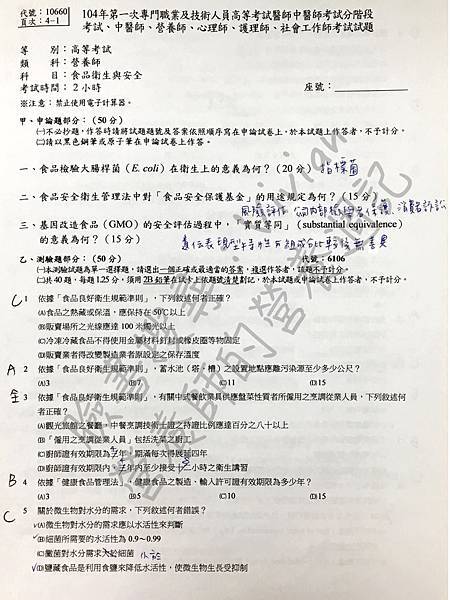 代號：10660
頁次：4-1
104年第一次專門職業及技術人員高等考試醫師中醫師考試分階段
考試、中醫師、營養師、心理師、護理師、社會工作師考試試題
等　　別：高等考試
類　　科：營養師
科　　目：食品衛生與安全
考試時間：2小時　座號：
※注意：禁止使用電子計算器。
甲、申論題部分：（50分）
㈠不必抄題，作答時請將試題題號及答案依照順序寫在申論試卷上，於本試題上作答者，不予計分。
㈡請以黑色鋼筆或原子筆在申論試卷上作答。
一、食品檢驗大腸桿菌（E. coli）在衛生上的意義為何？（20分） 指標菌
二、食品安全衛生管理法中對「食品安全保護基金」的用途規定為何？（15分）
風險評估 消費訴訟
三、基因改造食品（GMO）的安全評估過程中，「實質等同」（substantial equivalence）
的意義為何？（15分）
乙、測驗題部分：（50分）　代號：6106
㈠本測驗試題為單一選擇題，請選出一個正確或最適當的答案，複選作答者，該題不予計分。
㈡共40題，每題1.25分，須用2B鉛筆在試卡上依題號清楚劃記，於本試題或申論試卷上作答者，不予計分。
C 1 依據「食品良好衛生規範準則」，下列敘述何者正確？
(A)食品之熱藏或保溫，應保持在50℃以上
(B)販賣場所之光線應達100米燭光以上
(C)冷凍冷藏食品不得使用金屬材料釘封或橡皮圈等物固定
(D)販賣業者得改變製造業者原設定之保存溫度
A 2 依據「食品良好衛生規範準則」，蓄水池（塔、槽）之設置地點應離污染源至少多少公尺？
(A)3 (B)7 (C)11 (D)15
全 3 依據「食品良好衛生規範準則」，有關中式餐飲業具供應盤菜性質者所僱用之烹調從業人員，下列敘述何
者正確？
(A)觀光旅館之餐廳，中餐烹調技術士證之持證比例應達百分之八十以上
(B)「僱用之烹調從業人員」包括洗菜之廚工
(C)廚師證書有效期限為年，期滿每次得展延四年
(D)廚師證書有效期限內，年內至少接受小時之衛生講習
B 4 依據「健康食品管理法」，健康食品之製造、輸入許可證有效期限為多少年？
(A)3 (B)5 (C)10 (D)15
C 5 關於微生物對水分的需求，下列敘述何者錯誤？
(A)微生物對水分的需求應以水活性來判斷
(B)細菌所需要的水活性為0.9～0.99
(C)黴菌對水分需求大於細菌 小於
(D)鹽藏食品是利用食鹽來降低水活性，使微生物生長受抑制